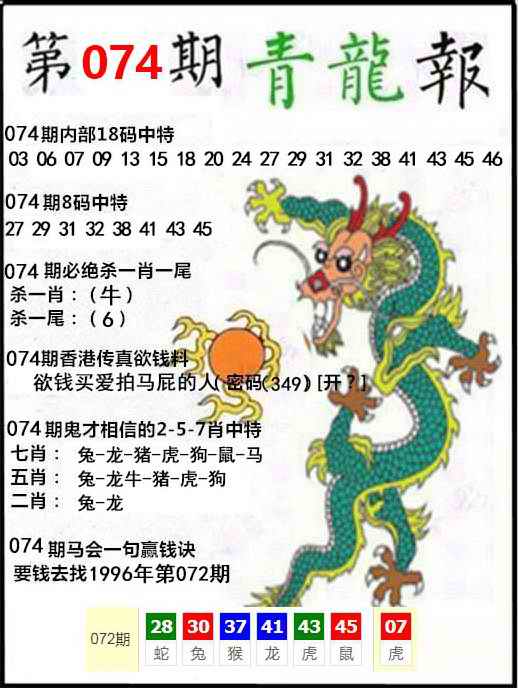 第074期青龍報
074期内部18码中特
03 06 07 09 13 15 18 20 24 27 29 31 32 38 41 43 45 46
074期8码中特
27 29 31 32 38 41 43 45
074期必绝杀一肖一尾
杀一肖：（牛）
杀一尾：（6）
074期香港传真欲钱料
欲钱买爱拍马屁的人(密码(349)[开？]
074期鬼才相信的2-5-7肖中特
七肖： 兔-龙-猪-虎-狗-鼠-马
五肖： 兔-龙牛-猪-虎-狗
二肖： 兔-龙
074期马会一句赢钱诀
要钱去找1996年第072期
072期 28 30 37 41 43 45 07
蛇 兔 猴 龙 虎 鼠 虎